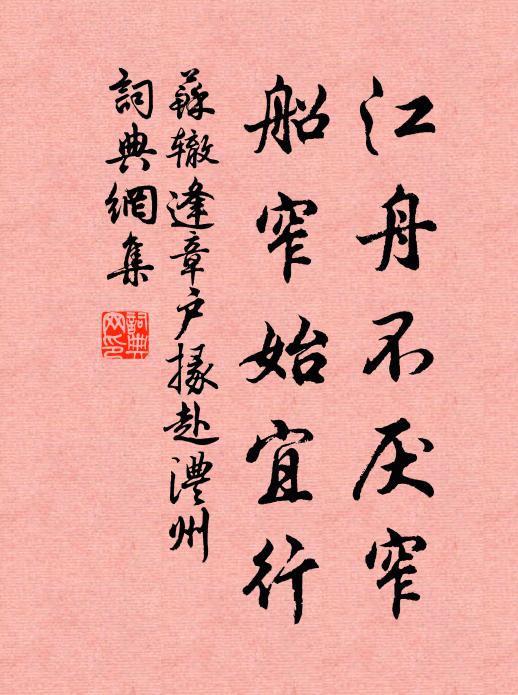 江舟不厌窄
船窄始宜行
蘇辙逢章户掾赴澧州
詞典網集
詞典網印